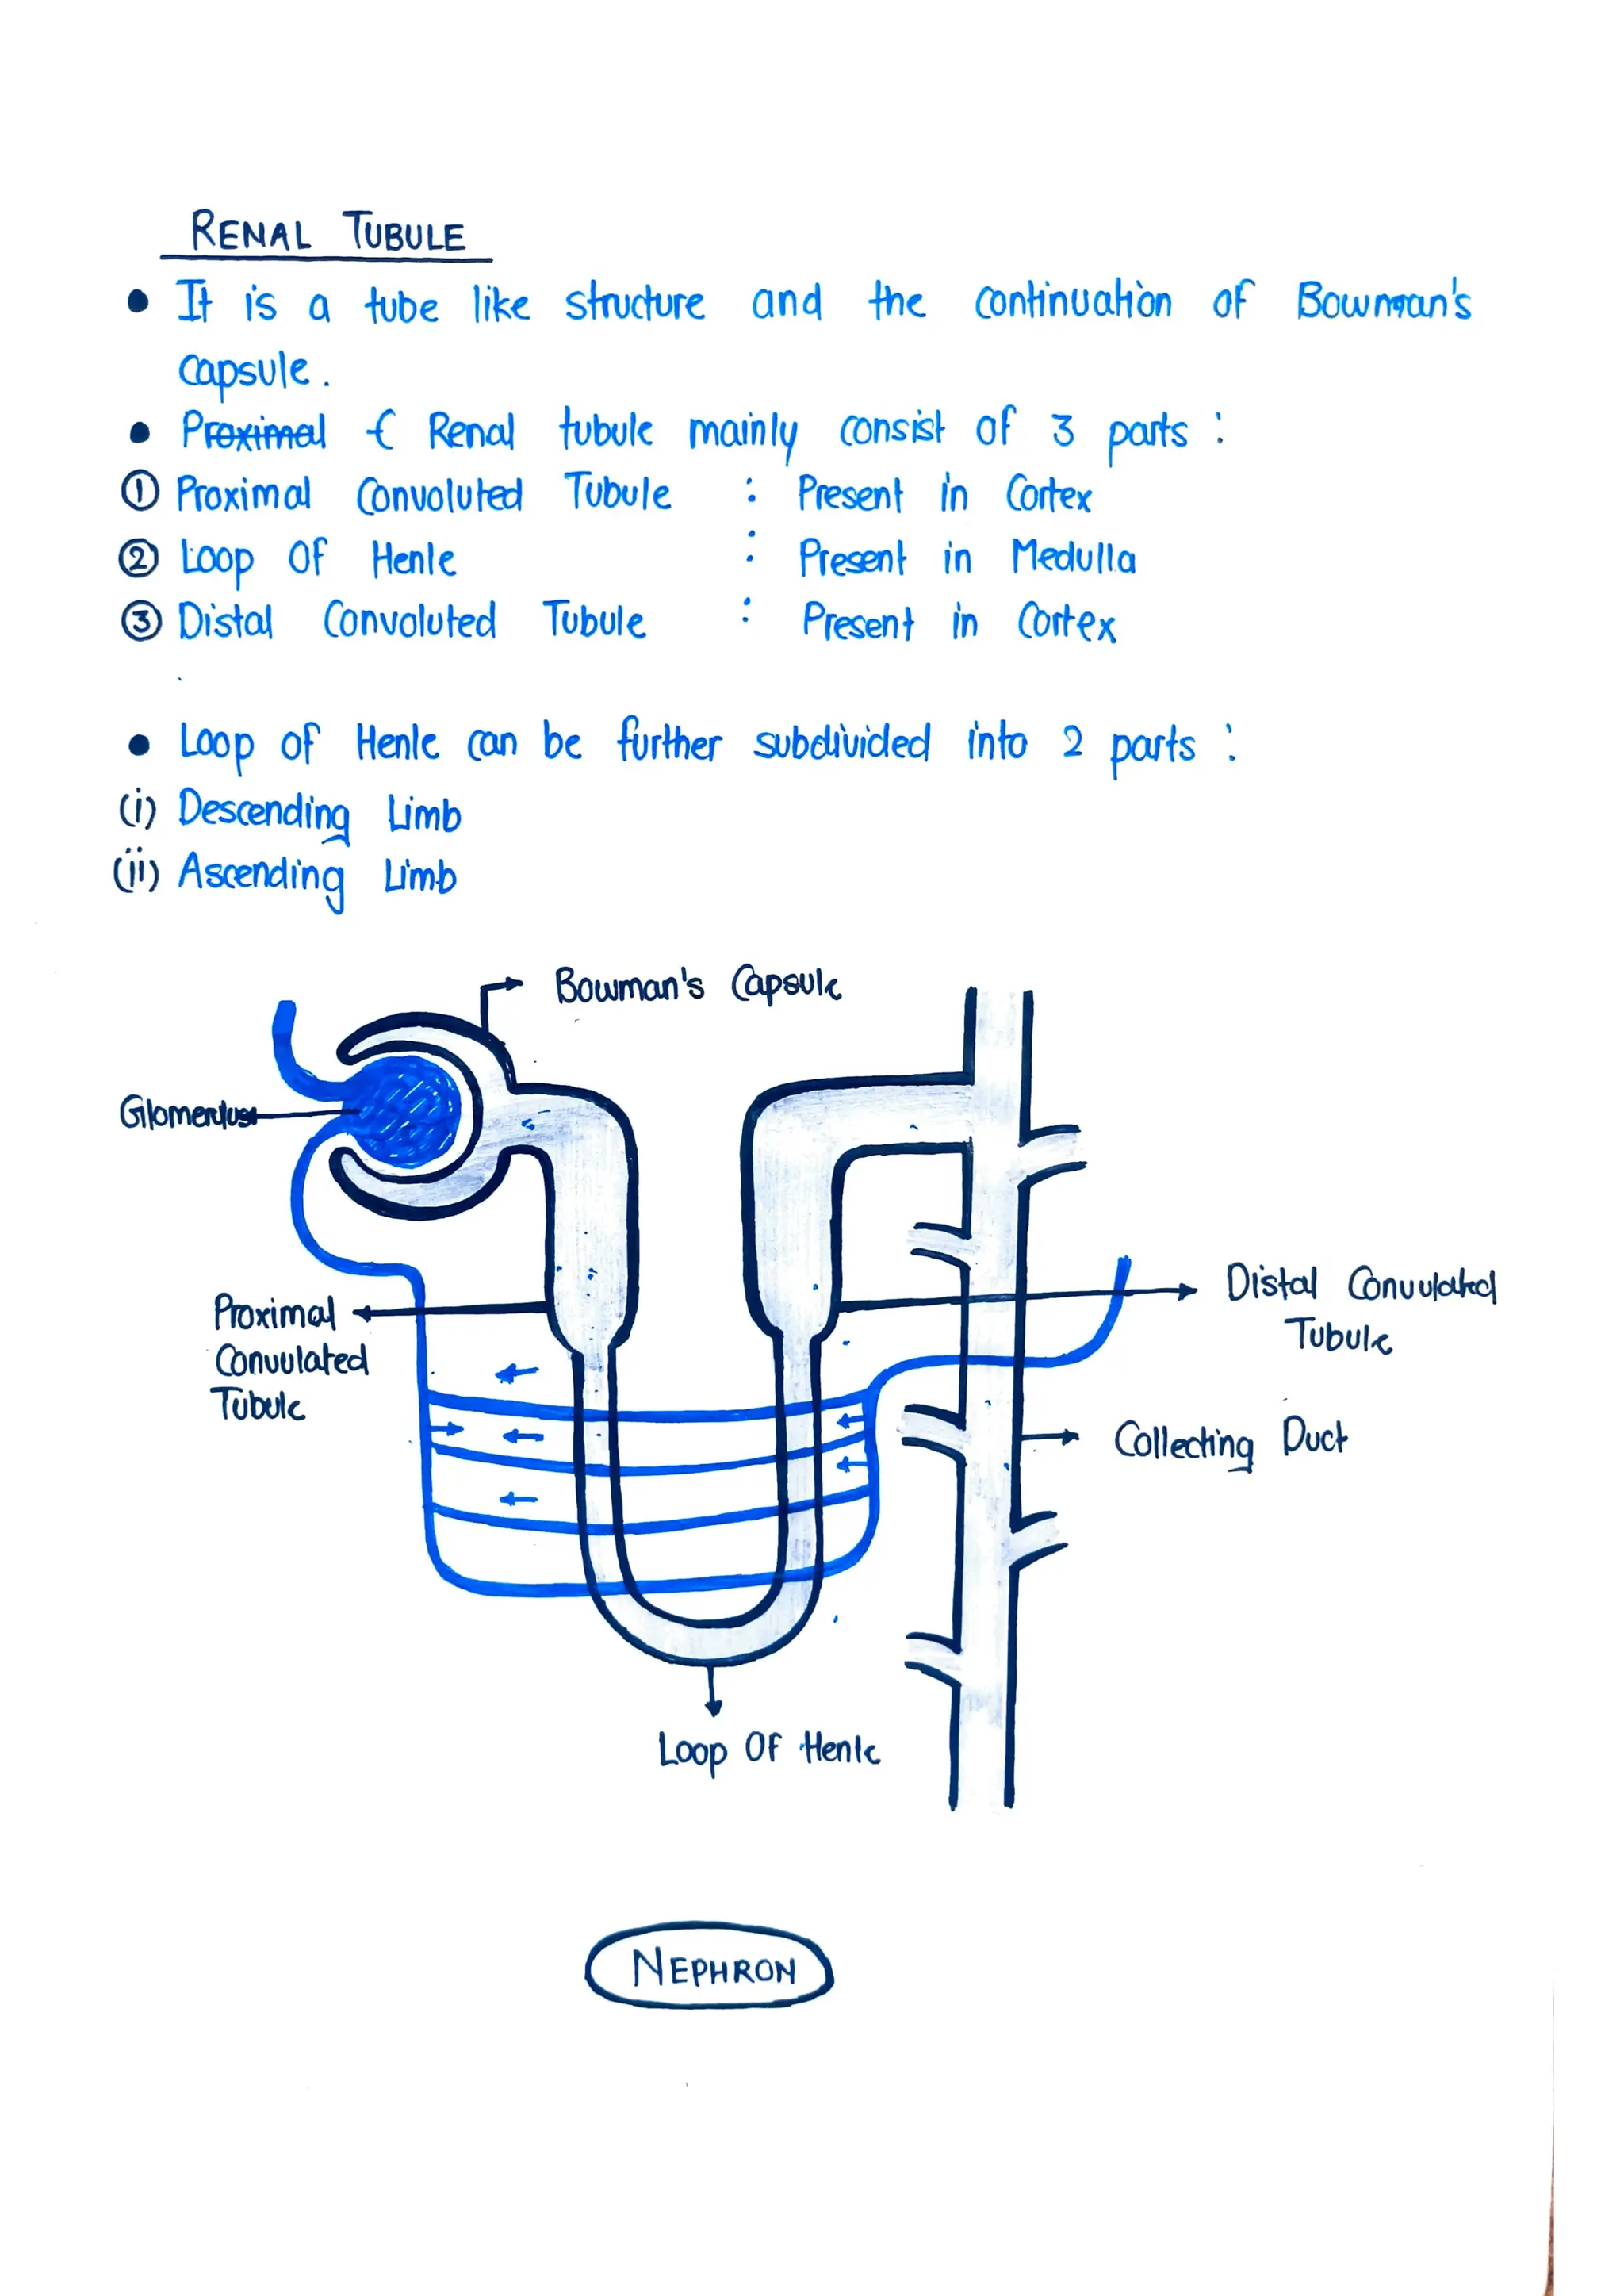 RENAL TUBULE
• It is a tube like structure and the continuation of Bowman's
capsule.
• Proximal Renal tubule mainly consist of 3 parts :
① Proximal Convoluted Tubule : Present in Cortex
② Loop Of Henle : Present in Medulla
③ Distal Convoluted Tubule : Present in Cortex
• Loop of Henle can be further subdivided into 2 parts :
(i) Descending Limb
(ii) Ascending Limb
Bowman's Capsule
Glomerulus
Distal Convulated
Tubule
Proximal
Convulated
Tubule
Collecting Duct
Loop Of Henle
NEPHRON